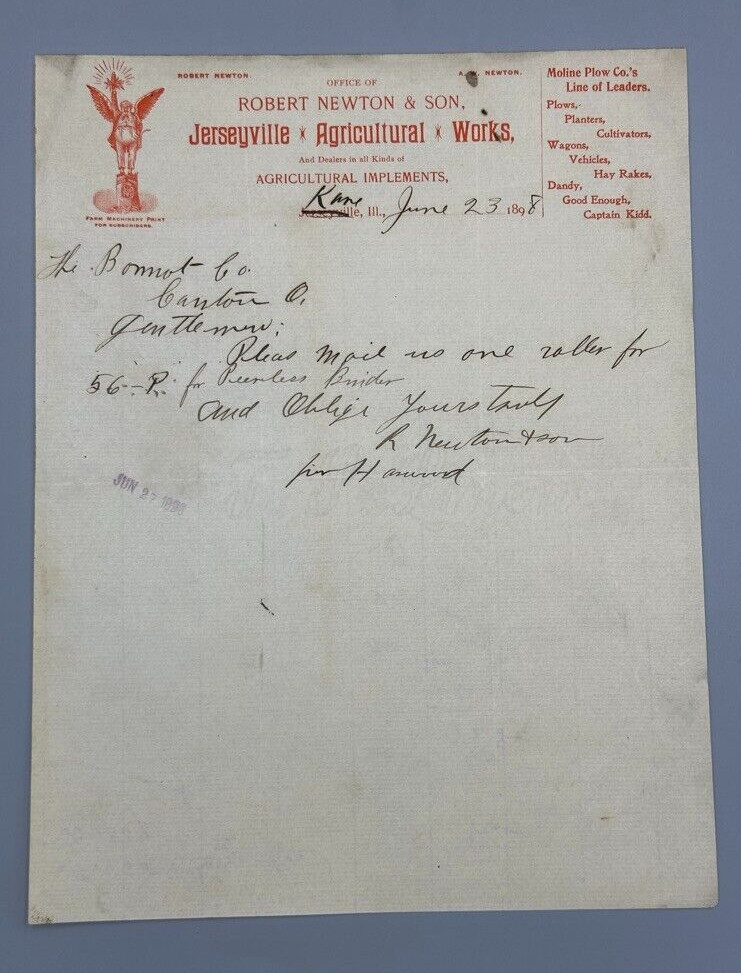 ROBERT NEWTON.
A. NEWTON.
OFFICE OF
ROBERT NEWTON & SON,
Jerseyville Agricultural Works,
And Dealers in all Kinds of
AGRICULTURAL IMPLEMENTS,
Kane
Jerseyville, Ill., June 23 1898
FARM MACHINERY PRINT
FOR SUBSCRIBERS.
Moline Plow Co.'s
Line of Leaders.
Plows,
Planters,
Cultivators,
Wagons,
Vehicles,
Hay Rakes,
Dandy,
Good Enough,
Captain Kidd.
The Bonnot Co.
Canton O.
Gentlemen:
Pleas mail us one roller for
56-P. for Peerless Binder
and Oblige Yours truly
R Newton & son
per
JUN 27 1898